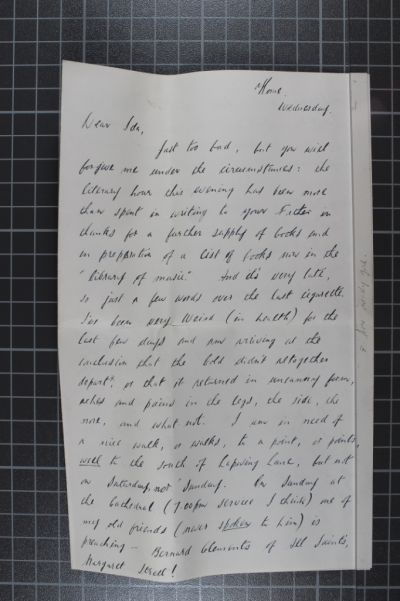 Home.
Wednesday.
Dear Ida,
Just too bad, but you will
forgive me under the circumstances: the
literary hour this evening has been more
than spent in writing to your Father in
thanks for a further supply of books and
in preparation of a list of books now in the
"library of music". And it's very late,
so just a few words over the last cigarette.
I've been very weird (in health) for the
last few days and am arriving at the
conclusion that the cold didn't altogether
depart, or that it returned in uncanny form,
aches and pains in the legs, the side, the
nose, and what not. I am in need of
a nice walk, or walks, to a point, or points,
well to the south of Lapwing Lane, but not
on Saturday, not Sunday. On Sunday at
the Cathedral (7.00pm service I think) one of
my old friends (never spoken to him) is
preaching - Bernard Clements of All Saints,
Margaret Street!